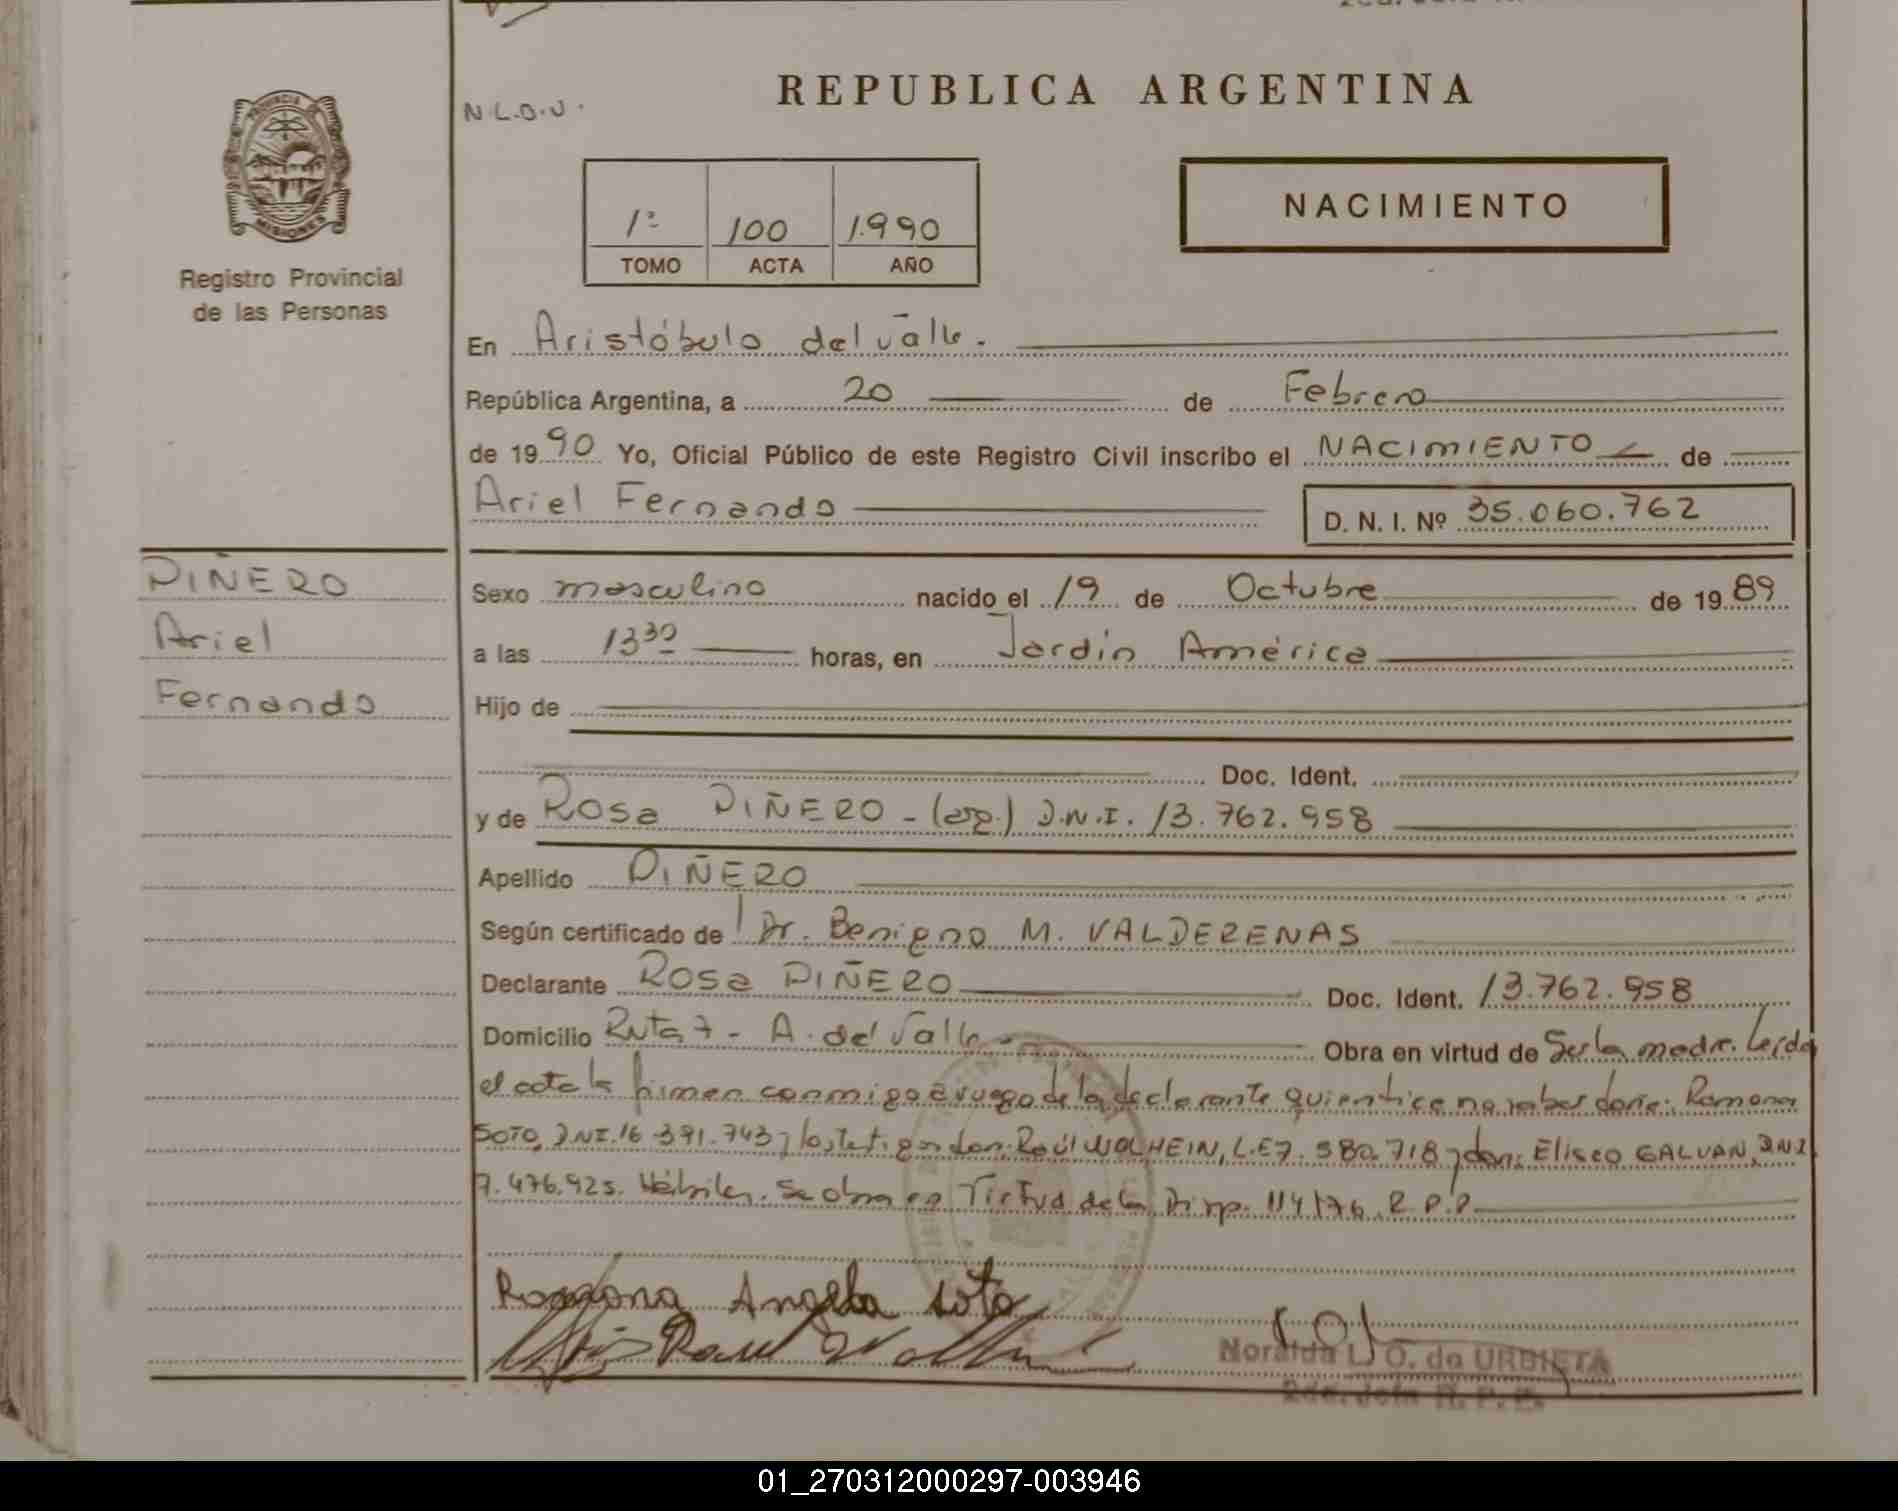 REPUBLICA ARGENTINA
N.L.O.U.
PROVINCIA DE
MISIONES
Registro Provincial
de las Personas
1º 100 1.990
TOMO ACTA AÑO
NACIMIENTO
En Aristóbulo del Valle.
República Argentina, a 20 de Febrero
de 1990 Yo, Oficial Público de este Registro Civil inscribo el NACIMIENTO de
Ariel Fernando
D. N. I. Nº 35.060.762
PIÑERO
Ariel
Fernando
Sexo masculino nacido el 19 de Octubre de 1989
a las 13 30 horas, en Jardín América
Hijo de
Doc. Ident.
y de Rosa PIÑERO - (arg.) D.N.I. 13.762.958
Apellido PIÑERO
Según certificado de Dr. Benigno M. VALDERENAS
Declarante Rosa PIÑERO Doc. Ident. 13.762.958
Domicilio Ruta 7 - A. del Valle - Obra en virtud de Ser la madre. Leída
el acta la firman conmigo a ruego de la declarante quien dice no saber doña: Ramona
SOTO, D.N.I. 16.391.743 y los testigos don: Raúl WOLHEIN, L.E 7.580.718 y don: Eliseo GALVAN, D.N.I
7.476.925. Hábiles. Se obra en Virtud de la Disp. 114/76 R.P.P
Ramona Angela Soto
Raul
Noralda L. O. de URBIETA
2da. Jefa R. P. P.
01_270312000297-003946